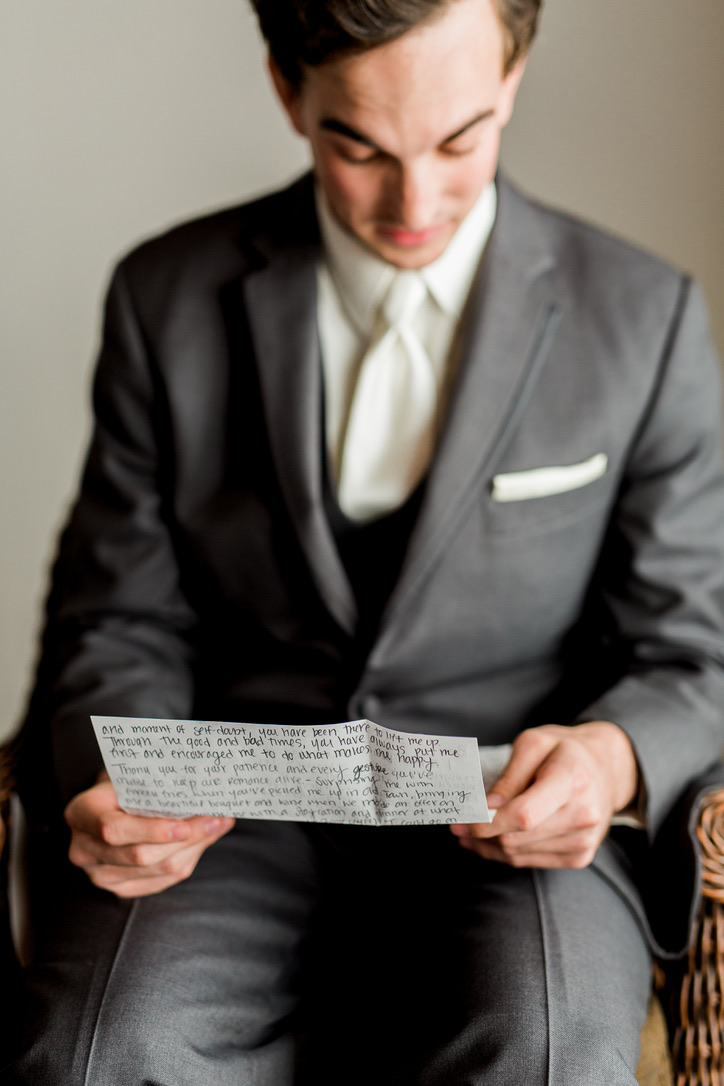 and moment of self-doubt, you have been there to lift me up
Through the good and bad times, you have always put me
first and encouraged me to do what makes me happy.
Thank you for your patience and every gesture you've
made to keep our romance alive - surprising me with
when you've picked me up in old bringing
me a beautiful bouquet and wine when we an offer on
with a and dinner at what
go on